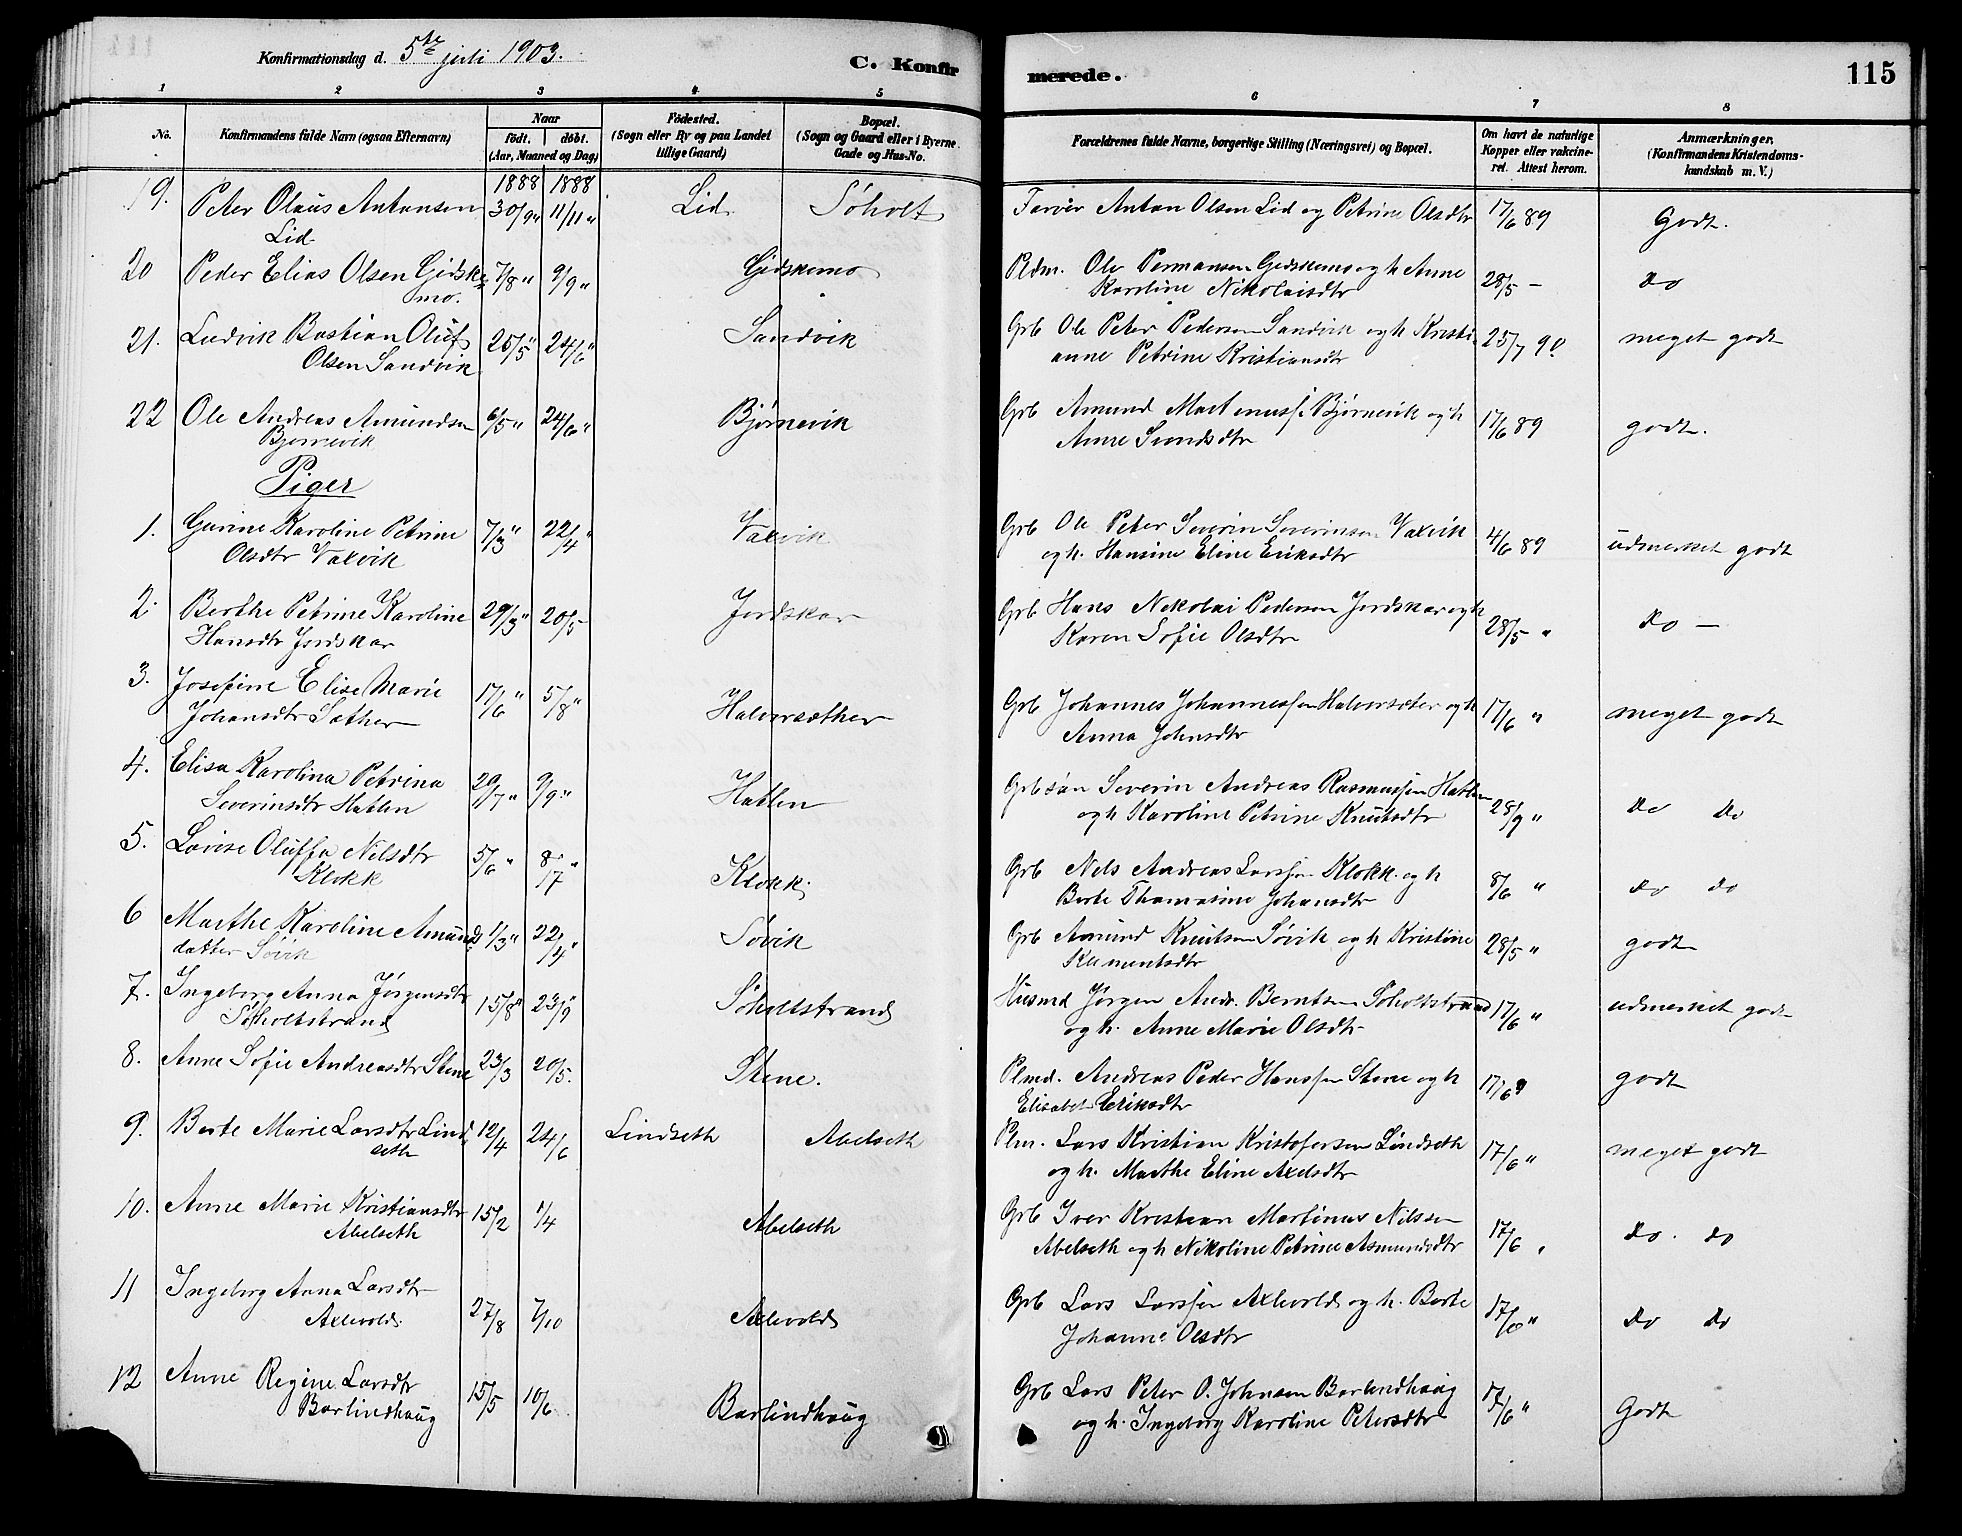 Konfirmationsdag d. 5te juli 1903.
C. Konfirmerede.
115
1 2 3 4 5 6 7 8
No.
Konfirmandens fulde Navn (ogsaa Efternavn)
Naar
født. døbt.
(Aar, Maaned og Dag)
Fødested.
(Sogn eller By og paa Landet
tillige Gaard)
Bopæl.
(Sogn og Gaard eller i Byerne
Gade og Hus-No.
Forældrenes fulde Navne, borgerlige Stilling (Næringsvei) og Bopæl.
Om havt de naturlige
Kopper eller vakcine-
ret. Attest herom.
Anmærkninger.
(Konfirmandens Kristendoms-
kundskab m. V.)
1888 1888
19. Peter Olaus Antonsen 30/9 " 11/11 " Lid Søholt Farver Anton Olsen Lid og Petrine Olsdtr 17/6 89 Godt.
Lid
20 Peder Elias Olsen Gidske 7/8 " 9/9 " Gidskemo Pldm. Ole Permansen Gidskemo og h Anne 28/5 - do
mo. Karoline Nikolaisdtr
21. Ludvik Bastian Oluf 25/5 " 24/6 " Sandvik Grb Ole Peter Pedersen Sandvik og h Kristi- 25/7 90 meget godt
Olsen Sandvik anne Petrine Kristiansdtr
22 Ole Andreas Amundsen 6/5 " 24/6 " Bjørnevik Grb Amund Martinussen Bjørnevik og h 17/6 89 godt.
Bjørnevik Anne Svendsdtr
Piger
1. Gurine Karoline Petrine 7/3 " 22/4 " Vaxvik Grb Ole Peter Severin Severinsen Vaxvik 4/6 89 udmerket godt
Olsdtr Vaxvik og h. Hansine Eline Eriksdtr
2. Berthe Petrine Karoline 29/3 " 20/5 Jordskar Grb Hans Nikolai Pedersen Jordskar og h 28/5 " do —
Hansdtr Jordskar Karen Sofie Olsdtr
3. Josefine Elise Marie 17/6 " 5/8 " Halvorsæther Grb Johannes Johannessen Halvorsæter og h 17/6 " meget godt
Johansdtr Sæther Anna Johnsdtr
4. Elisa Karolina Petrina 29/7 " 9/9 " Hatlen Grbsøn Severin Andreas Rasmussen Hatlen 28/9 " do do
Severinsdtr Hatlen og h Karoline Petrine Knutsdtr
5. Lovise Oluffa Nilsdtr 5/6 " 8/7 " Klokk. Grb Nils Andreas Larssen Klokk. og h 8/6 " do do
Klokk Berte Thomasine Johansdtr
6 Marthe Karoline Amunds 1/3 " 22/4 " Søvik Grb Amund Knutsen Søvik og h Kristine 28/5 " godt
datter Søvik Klementsdtr
7. Ingeborg Anna Jørgensdtr 15/8 " 23/9 " Søholtstrand Husmd Jørgen Andr. Berntsen Søholtstrand 17/6 " udmerket godt
Søholtstrand og h. Anne Marie Olsdtr
8. Anne Sofie Andreasdtr Stene 23/3 20/5. Stene. Plmd. Andreas Peder Hanssen Stene og h 17/6 9 godt
Elisabet Eriksdtr
9. Berte Marie Larsdtr Lind 12/4 24/6 Lindseth Abelseth Plm. Lars Kristian Kristofersen Lindseth 17/6 " meget godt
seth og h. Marthe Eline Axelsdtr
10. Anne Marie Kristiansdtr 15/2 1/4 Abelseth Grb Iver Kristian Martinus Nilssen 17/6 " do. do
Abelseth Abelseth og h Nikoline Petrine Asmundsdtr
11 Ingeborg Anna Larsdtr 27/8 7/10 Axlevolds Grb Lars Larssen Axlevolds og h. Berte 17/6 " do do
Axlevolds. Johanne Olsdtr
12 Anne Regine Larsdtr 15/5 10/6 Barlindhaug Grb Lars Peter O. Johnsen Barlindhaug 17/6 " Godt
Barlindhaug og h. Ingeborg Karoline Petersdtr